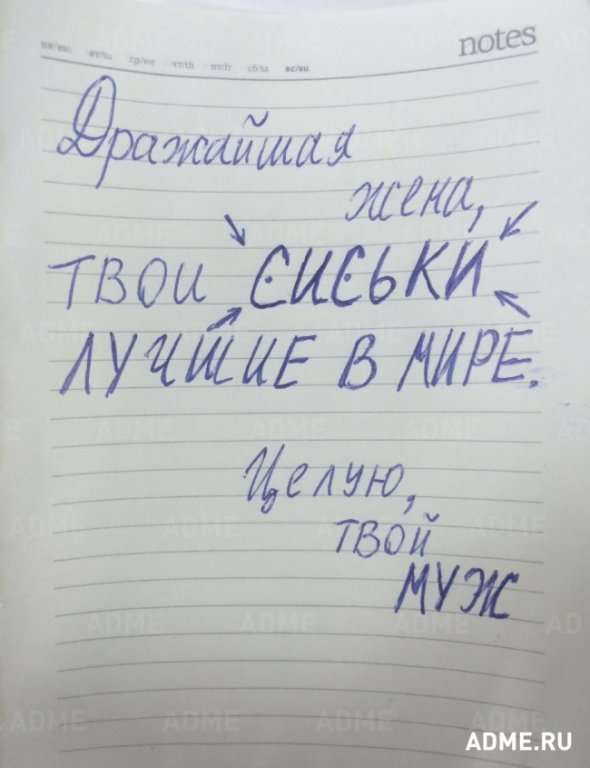 notes
пн/mo вт/tu ср/we чт/th пт/fr сб/sa вс/su
Дражайшая
жена,
ТВОИ СИСЬКИ
ЛУЧШИЕ В МИРЕ.
Целую,
ТВОЙ
МУЖ
ADME.RU